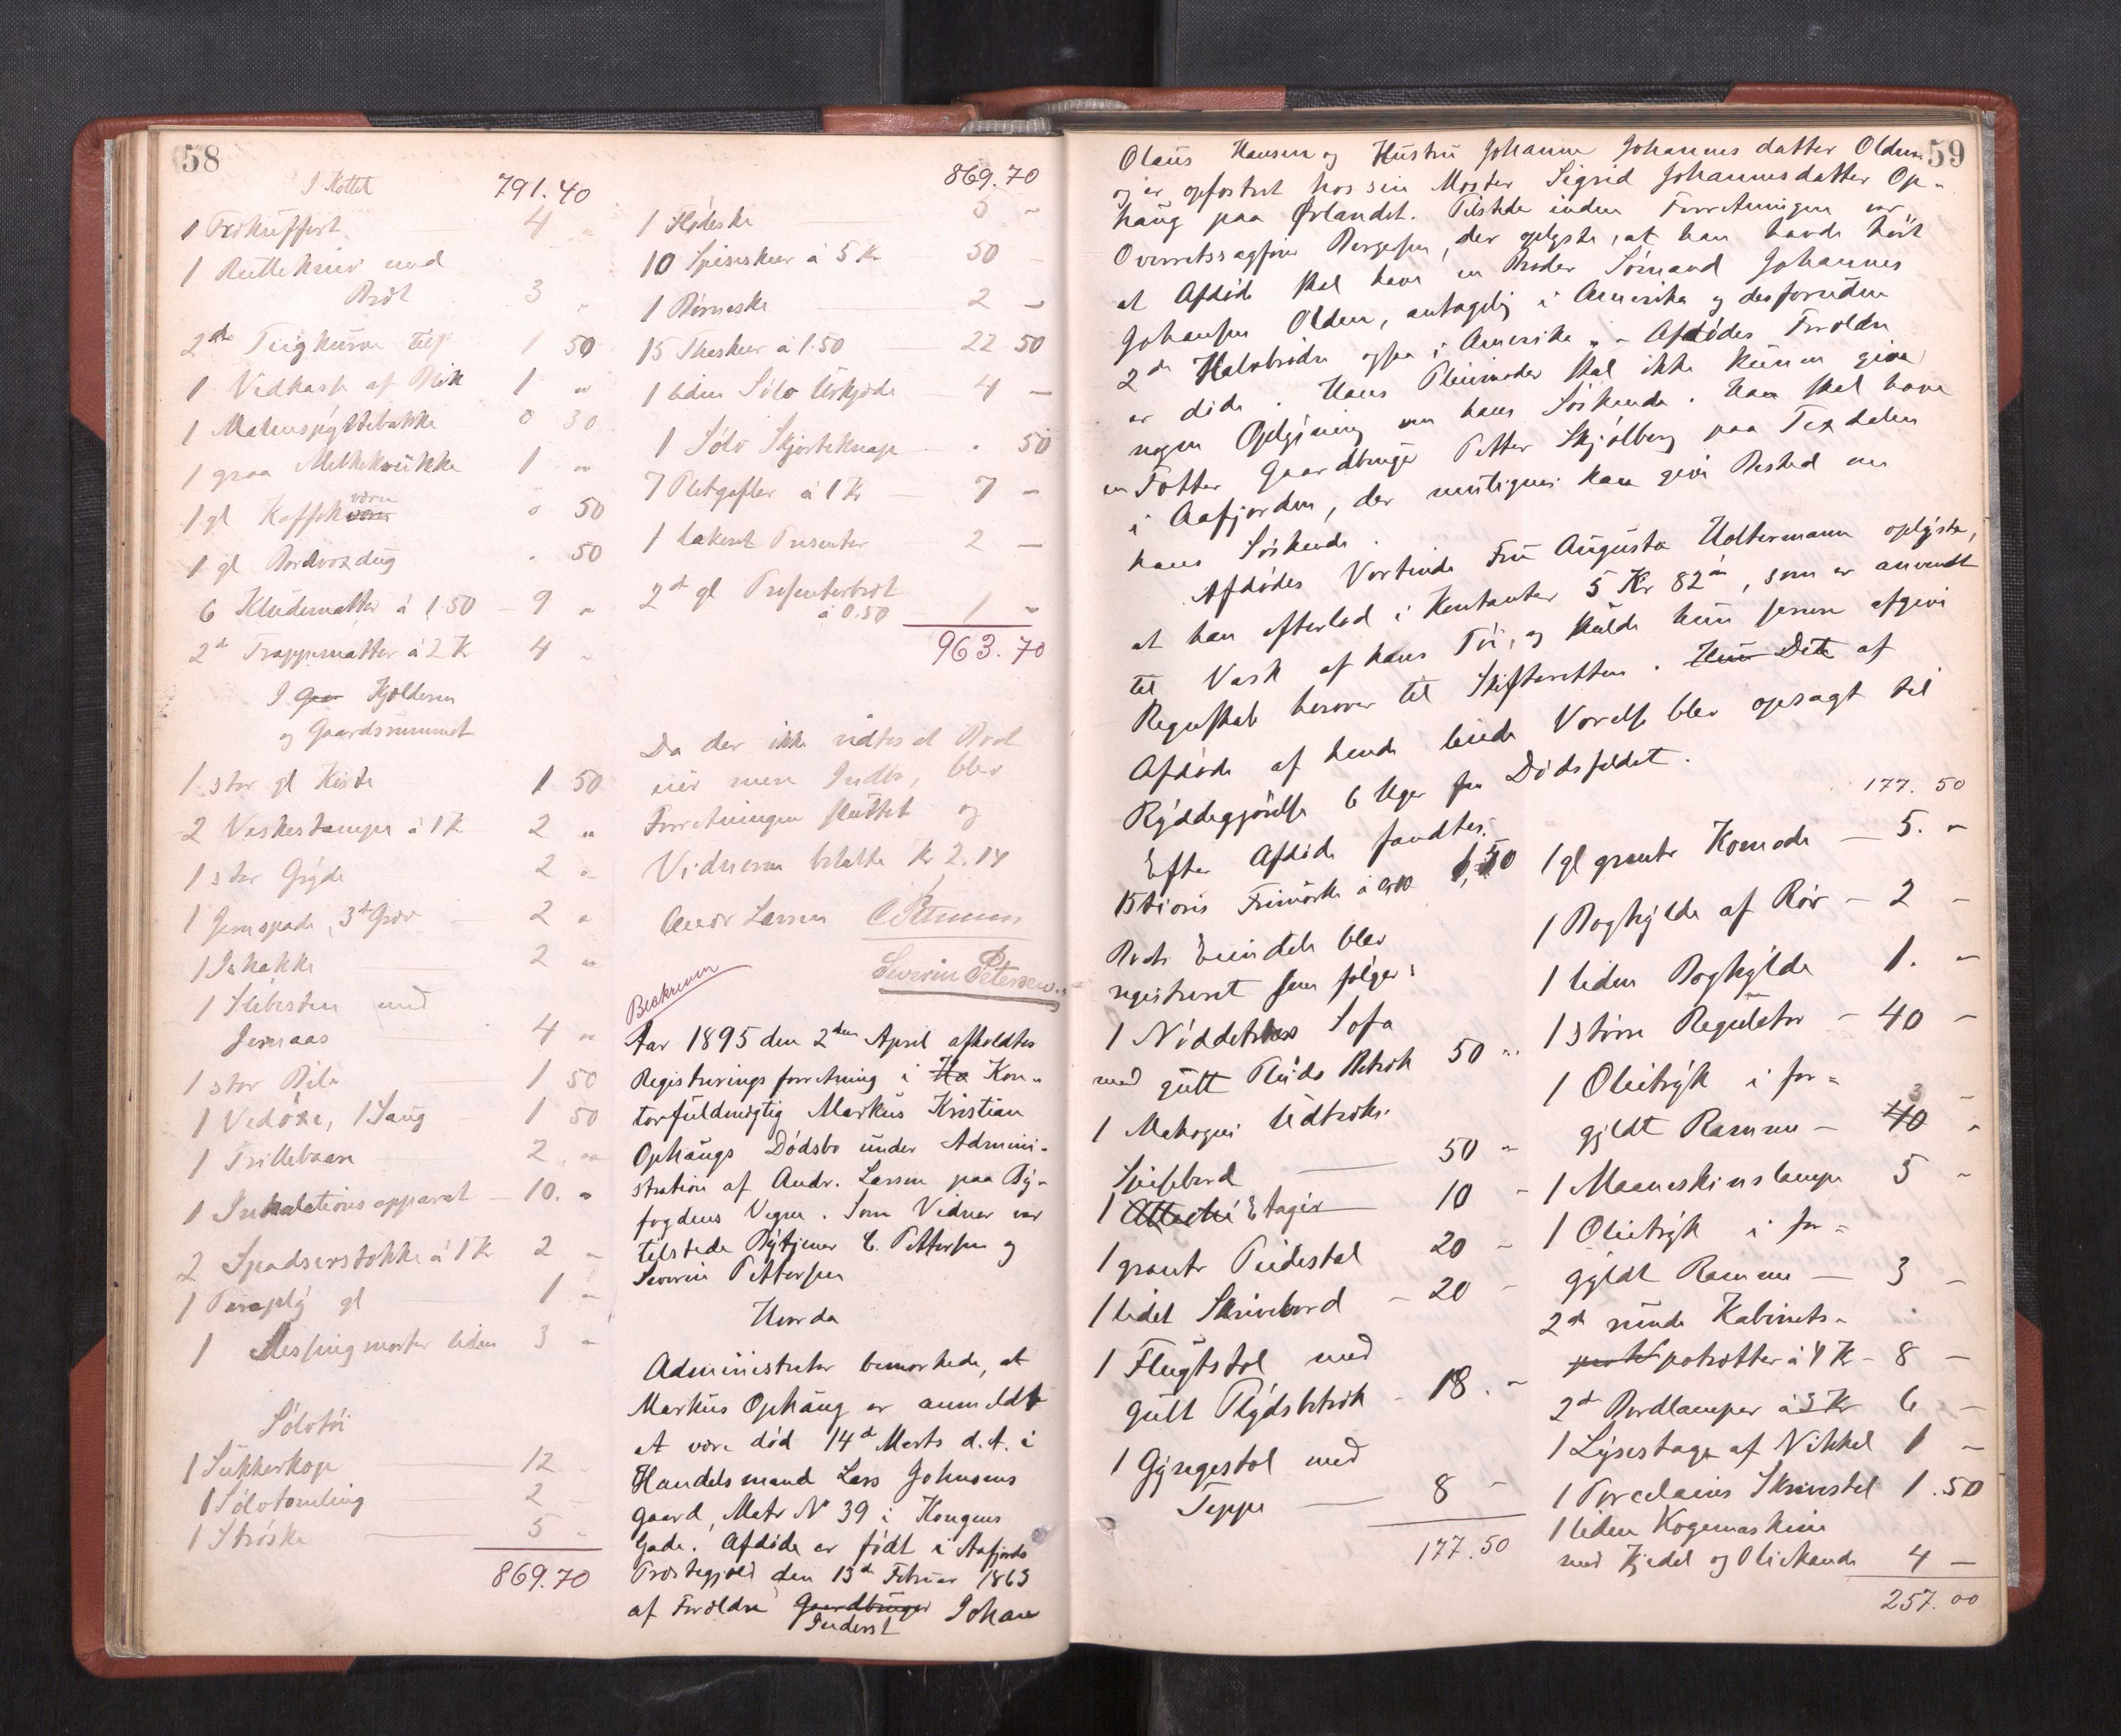 58
I Kottet 791.40
1 Trækuffert 4 "
1 Rullekniv med
Bræt 3 "
2de Tøigkurve 1 50
1 Vedkasse af Blik 1 "
1 Malmspyttebakke 0 30
1 graa Melkekrukke 1 "
1 gl Kaffekværn 0 50
1 gl Bordvoxdug . 50
6 Kludematter à 1.50 - 9 "
2de Trappematter à 2 Kr 4 "
I Kjelderen
og Gaardsrummet
1 stor gl Kiste 1 50
2 Vaskestamper à 1 K 2 "
1 stor Gryde 2 "
1 Jernspade, 3de 2 "
1 Ishakke 2 "
1 Slibesten med
Jernaas 4 "
1 stor 1 50
1 Vedøxe, 1 Saug 1 50
1 Trillebaare 2 "
1 Inhalationsapparat - 10. "
2 Spadserstokke à 1 Kr 2 "
1 Paraply gl 1 "
1 Messingmorter liden 3 "
Sølvtøi
1 Sukkerkop 12
1 Sølvtomling 2
1 Strøske 5 -
869.70
869.70
1 Flødeske 3 -
10 Spiseskeer à 5 Kr 50 -
1 Barneske 2 -
15 Theskeer à 1.50 22 50
1 liden Sølv Urkjæde 4 -
1 Sølv Skjorteknap . 50
7 Pletgafler à 1 Kr 7 -
1 lakeret Presenter 2 -
2de gl Presenterbræt
à 0.50 1 -
963.70
Da der ikke vidtes at Boet
eier mere Indbo, blev
Forretningen sluttet og
Vidnerne betalte Kr 2.14
Andr Larsen C Pettersen
Severin Petersen.
Beskreven
Aar 1895 den 2den April afholdtes
Registreringsforretning i Ho Kon-
torfuldmægtig Markus Kristian
Ophaugs Dødsbo under Admini-
stration af Andr. Larsen paa By-
fogdens Vegne. Som Vidner var
tilstede Bytjener C. Pettersen og
Severin Pettersen
Hvorda
Administrator bemærkede, at
Markus Ophaug er anmeldt
at være død 14de Marts d.A. i
Handelsmand Lars Johnsens
Gaard, Matr No 39 i Kongens
Gade. Afdøde er født i Aafjords
Præstegjeld den 13de Februar 1863
af Forældre Gaardbruger Johan
Inderst
59
Olaus Hansen og Hustru Johanne Johannesdatter Olden
og er opfostret hos sin Moster Sigrid Johannesdatter Op-
haug paa Ørlandet. Tilstede under Forretningen var
Overretssagfører Borgersen, der oplyste, at han havde hørt
at Afdøde skal have en Broder Sømand Johannes
Johansen Olden, antagelig i Amerika og desforuden
2de Halvbrødre ogsaa i Amerika. - Afdødes Forældre
er døde. Hans Pleiemoder skal ikke kunne give
nogen Oplysning om hans Søskende. Han skal have
en Fætter Gaardbruger Petter Skjølberg paa
i Aafjorden, der muligens kan give Besked om
hans Søskende.
Afdødes Vertinde Fru Augusta Holtermann oplyste,
at han efterlod i Kontanter 5 Kr 82 Øre, som er anvendt
til Vask af hans Tøi, og skulde hun senere afgive
Regnskab herover til Skifteretten. Hun Dette af
Afdøde af hende leiede Værelse blev opsagt til
Ryddeggjørelse 6 Uger fra Dødsfaldet.
Efter Afdøde fandtes:
15 tiøres Frimærke à 0.10 1,50
Boets Eiendele blev
registreret som følger:
1 Nøddetræs Sofa
med gult Pluds Betræk 50 "
1 Mahogni Udtræks-
Spisebord 50 "
1 Etagér 10 -
1 grønt Piedestal 20 -
1 lidet Skrivebord - 20 -
1 Flugtstol med
gult Plydsbetræk - 18 . -
1 Gyngestol med
Teppe 8 -
177.50
177. 50
1 gl grønt Komode - 5. -
1 Boghylde af Rør - 2 -
1 liden Boghylde 1. -
1 større Regulator - 40 -
1 Olietryk i for-
gyldt Ramme - 3 -
1 Maaneskinslampe 5 -
1 Olietryk i for-
gyldt Ramme - 3 -
2de runde Kabinets-
potrætter à 4 Kr - 8 -
2de Bordlamper à 3 Kr 6 -
1 Lysestage af Nikkel 1 -
1 Porcelains Skrivestel 1 . 50
1 liden Kogemaskine
med Kjedel og Oliekande 4 -
257.00